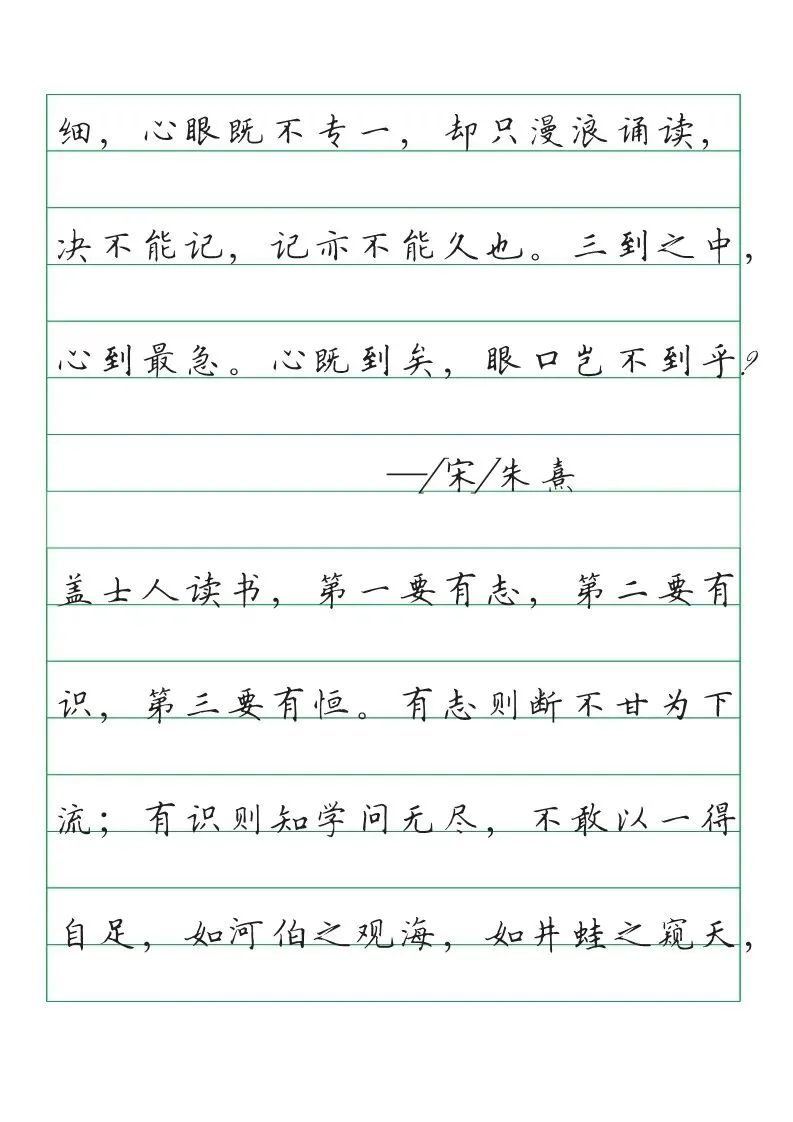 细，心眼既不专一，却只漫浪诵读，
决不能记，记亦不能久也。三到之中，
心到最急。心既到矣，眼口岂不到乎？
—/宋/朱熹
盖士人读书，第一要有志，第二要有
识，第三要有恒。有志则断不甘为下
流；有识则知学问无尽，不敢以一得
自足，如河伯之观海，如井蛙之窥天，